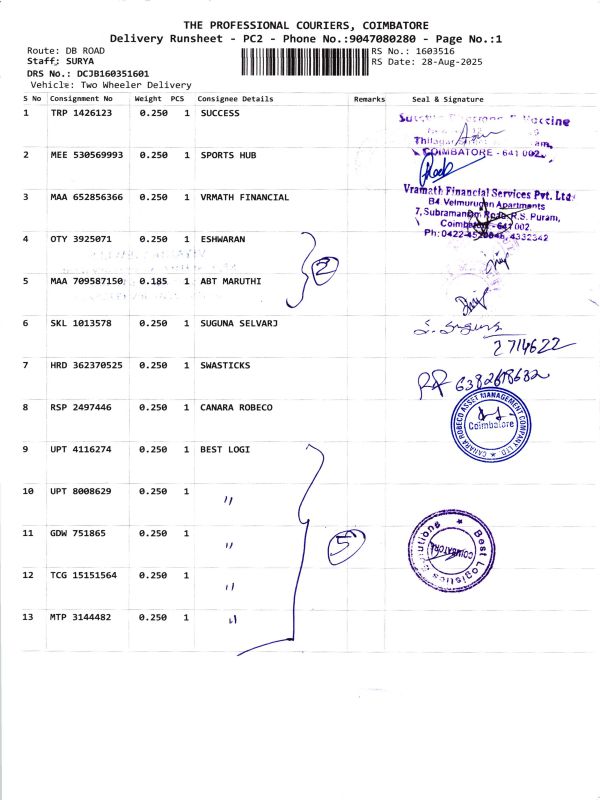 THE PROFESSIONAL COURIERS, COIMBATORE
Delivery Runsheet - PC2 - Phone No.:9047080280 - Page No.:1
Route: DB ROAD RS No.: 1603516
Staff: SURYA RS Date: 28-Aug-2025
DRS No.: DCJB160351601
Vehicle: Two Wheeler Delivery
S No Consignment No Weight PCS Consignee Details Remarks Seal & Signature
1 TRP 1426123 0.250 1 SUCCESS
Vaccine
COIMBATORE - 641 002
2 MEE 530569993 0.250 1 SPORTS HUB
3 MAA 652856366 0.250 1 VRMATH FINANCIAL
Vramath Financial Services Pvt. Ltd
B4 Velmurugan Apartments
7, Subramaniam Road, R.S. Puram,
Coimbatore - 641 002.
Ph: 0422-4332342
4 OTY 3925071 0.250 1 ESHWARAN
2
5 MAA 709587150 0.185 1 ABT MARUTHI
6 SKL 1013578 0.250 1 SUGUNA SELVARJ
S. Suguna
2714622
7 HRD 362370525 0.250 1 SWASTICKS
RR 6382678682
8 RSP 2497446 0.250 1 CANARA ROBECO
CANARA ROBECO ASSET MANAGEMENT COMPANY LTD.
Coimbatore
9 UPT 4116274 0.250 1 BEST LOGI
10 UPT 8008629 0.250 1 "
11 GDW 751865 0.250 1 "
5
Best Logistics Solutions
COIMBATORE
12 TCG 15151564 0.250 1 "
13 MTP 3144482 0.250 1 "